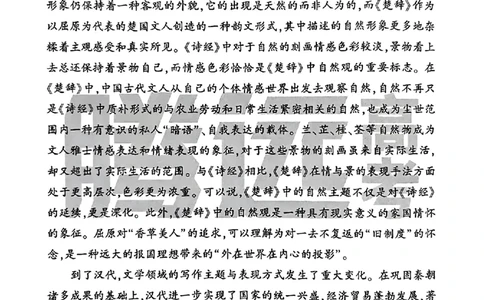 形象仍保持着一种客观的外貌，它的出现是天然的而非人为的，而《楚辞》作为
以屈原为代表的楚国文人创造的一种韵文形式，其中描述的自然形象更多地杂
糅着主观感受和真实所见。《诗经》中对于自然的刻画情感色彩较淡，景物看上
去总还保持着景物自己，而情感色彩恰恰是《楚辞》中自然观的重要标志。在
《楚辞》中，中国古代文人从自己的个体情感世界出发去观察自然，自然不再只
是《诗经》中质朴形式的与农业劳动和日常生活紧密相关的自然，也成为生世范
围内一种有意识的私人“暗语”、自我表达的载体。兰、芷、桂、荃等自然物成为
文人雅士情感表达和情绪表现的象征，对于这些景物的刻画虽来自实际生活，
却又超出了实际生活的范围。与《诗经》相比，《楚辞》在情与景的表现手法方面
处于更高层次，色彩更为浓重。可以说，《楚辞》中的自然主题不仅是对《诗经》
的延续，更是深化。此外，《楚辞》中的自然观是一种具有现实意义的家国情怀
的象征。屈原对“香草美人”的追求，可以理解为对一去不复返的“旧制度”的怀
念，是一种远大的报国理想带来的“外在世界在内心的投影”。
到了汉代，文学领域的写作主题与表现方式发生了重大变化。在巩固秦朝
诸多成果的基础上，汉代进一步实现了国家的统一兴盛，经济贸易蓬勃发展，著
腾远高考